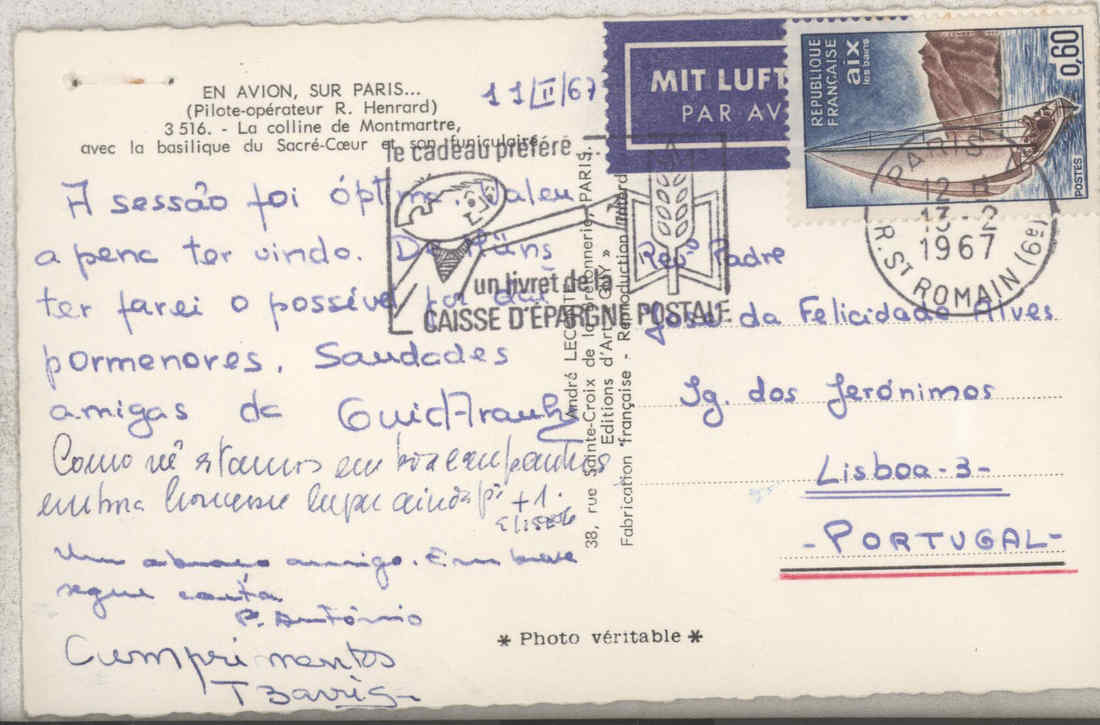 EN AVION, SUR PARIS...
(Pilote-opérateur R. Henrard)
3 516. - La colline de Montmartre,
avec la basilique du Sacré-Cœur et son funiculaire.
11/II/67
MIT LUFT
PAR AV
REPUBLIQUE
FRANÇAISE
aix
les bains
0,60
POSTES
le cadeau préféré
un livret de la
CAISSE D'ÉPARGNE POSTALE
PARIS
12 H
13-2
1967
R. ST ROMAIN (6e)
A sessão foi óptima. Valeu
a pena ter vindo.
ter farei o possível
pormenores. Saudades
amigas da
Como vê estamos em boa
+ 1.
Um abraço amigo. Em breve
segue carta
P. António
Cumprimentos
André LECONTE
38, rue Sainte-Croix de la Bretonnerie, PARIS.
Editions d'Art « GUY »
Fabrication française - Reproduction
Revº Padre
José da Felicidade Alves
Ig. dos Jerónimos
Lisboa-3-
-PORTUGAL-
* Photo véritable *